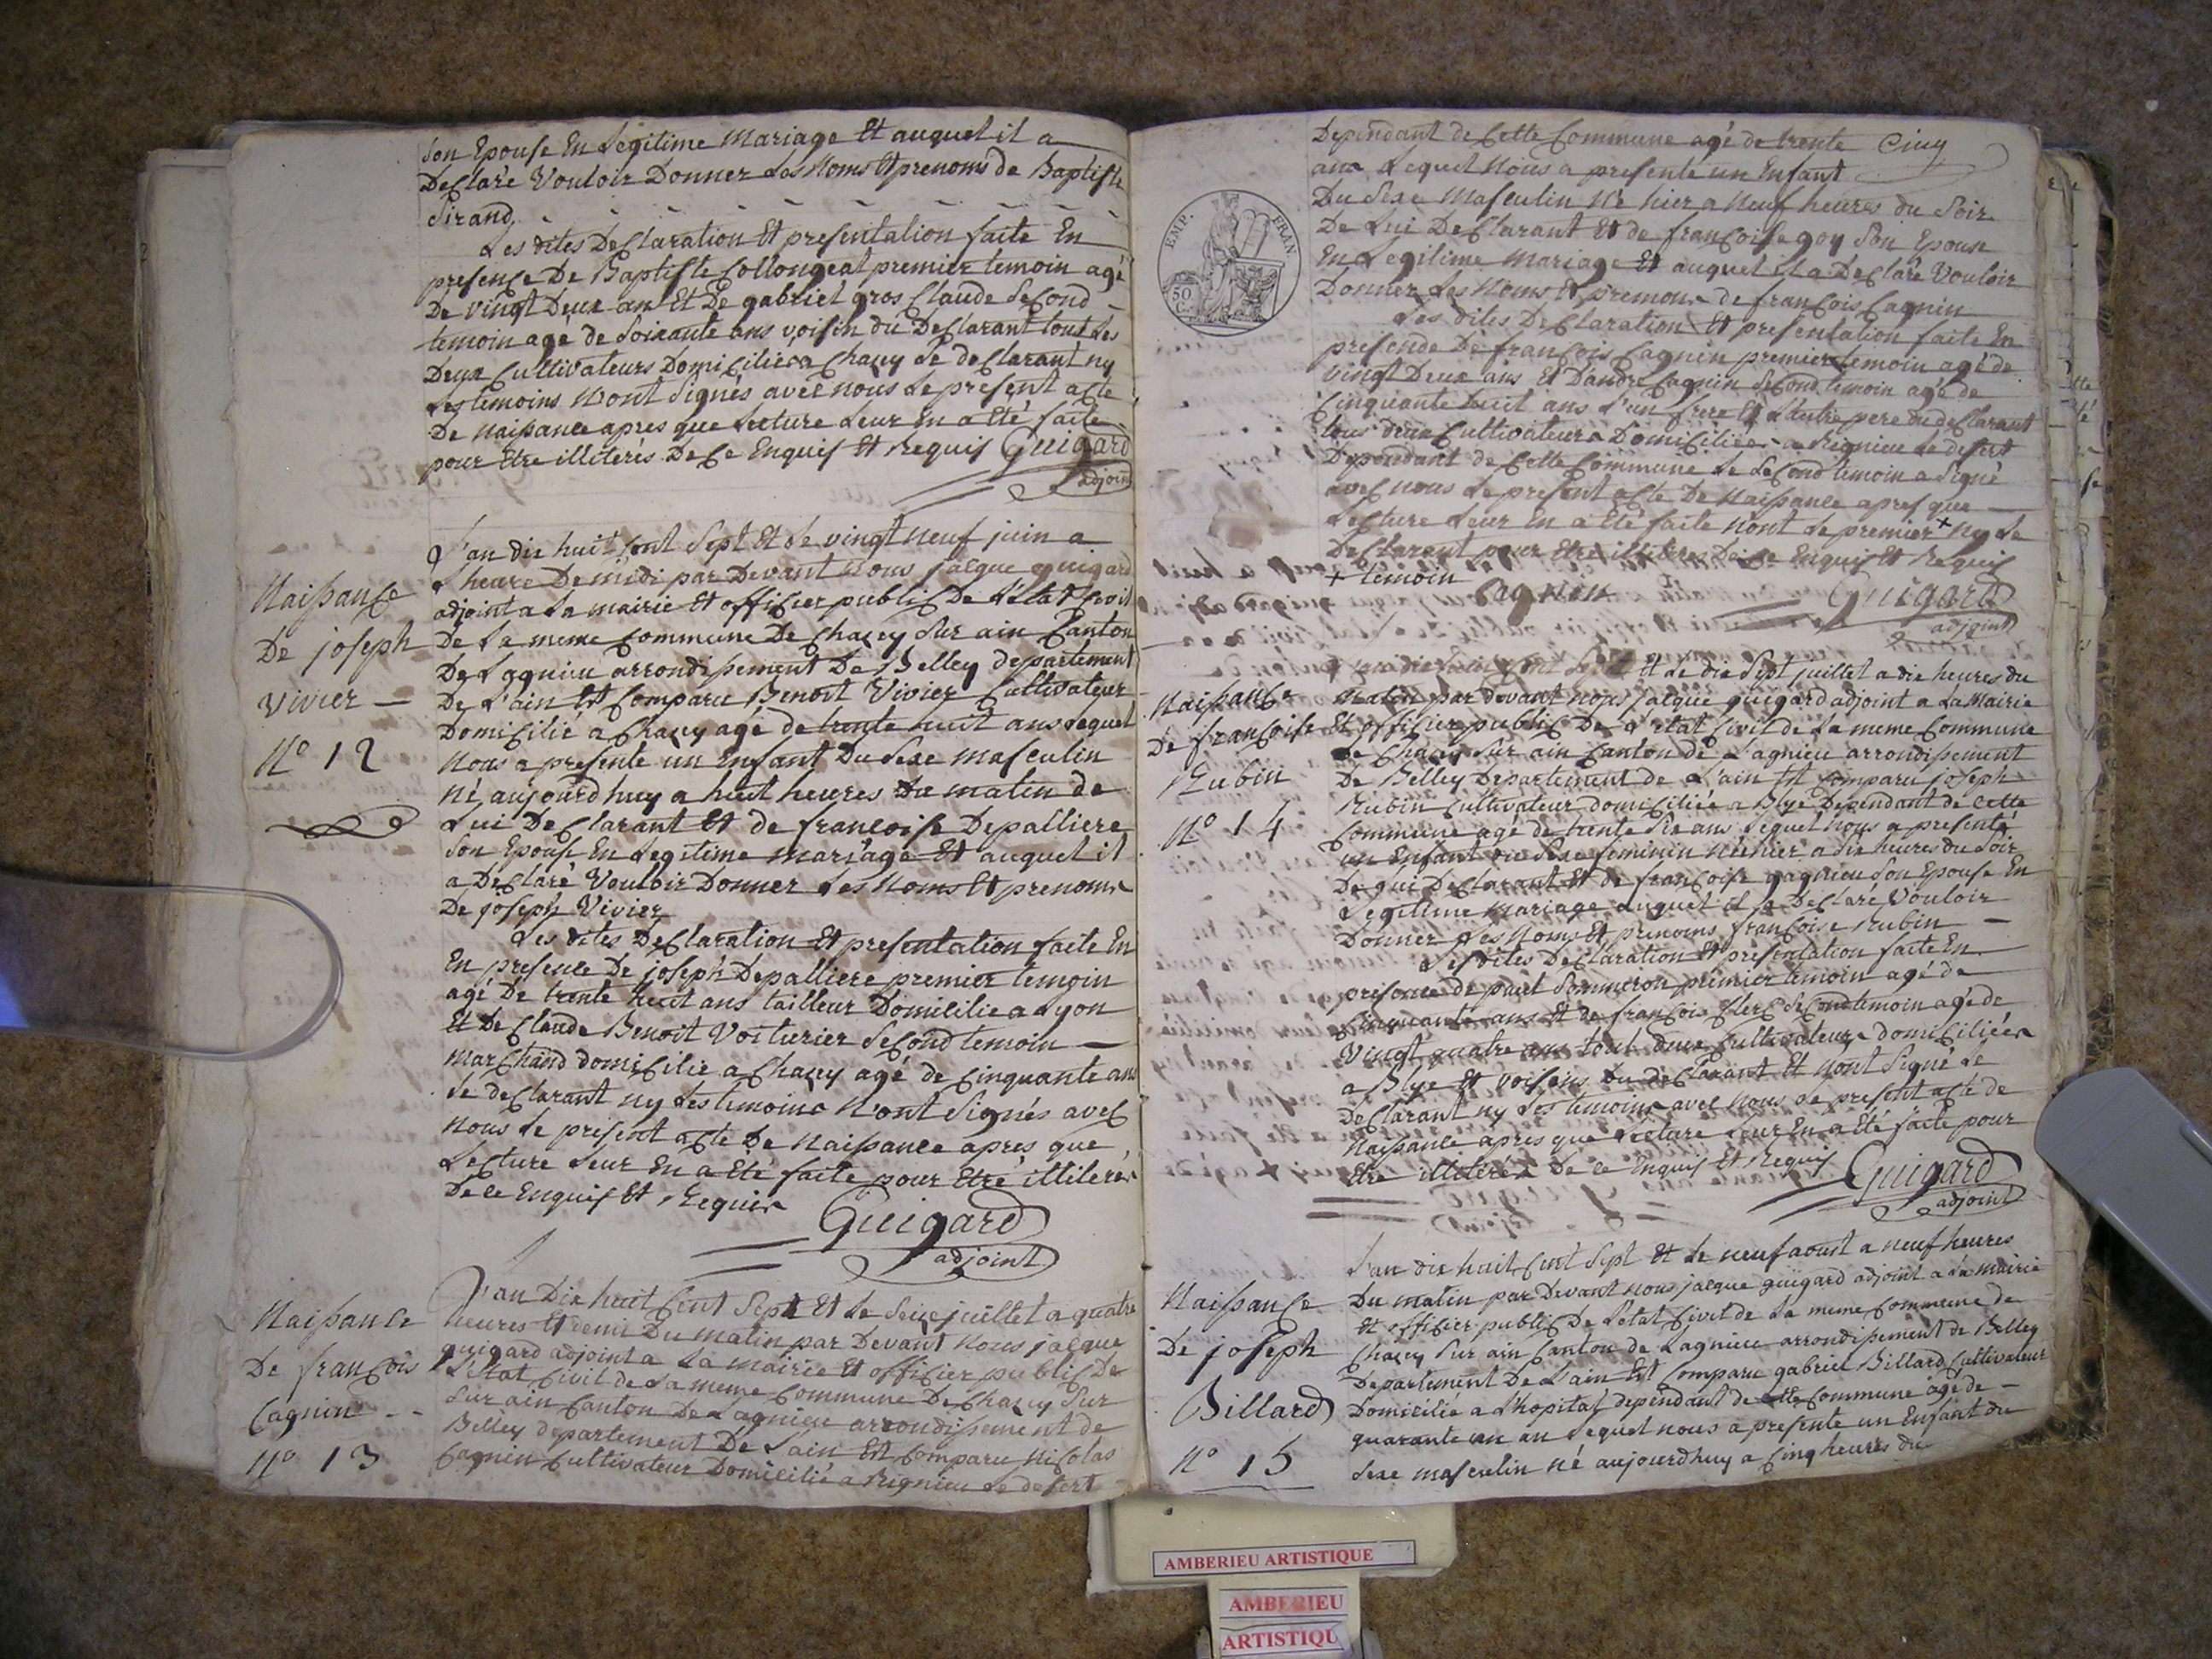 son Epouse En Legitime Mariage Et auquel il a
Declaré Vouloir Donner Les Noms Et prenoms de Baptiste
Sirand
Les dites Declaration Et presentation faite En
presence De Baptiste Collongeat premier temoin agé
De vingt Deux an Et De gabriel gros Claude Second
temoin agé de Soixante ans voisin du Declarant tous Les
Deux Cultivateurs Domiciliés a Chazey Le declarant ny
Les temoins N'ont Signés avec nous Le present acte
De Naissance apres que Lecture Leur En a Eté faite
pour Etre illiterés De Ce Enquis Et Requis Guigard
adjoint
Naissance
De joseph
Vivier
N° 12
L'an dix huit Cent Sept Et Le vingt Neuf juin a
L'heure De midi par Devant Nous jacque guigard
adjoint a La mairie Et officier public De L'état Civil
De La meme Commune De Chazey Sur ain Canton
De Lagnieu arrondissement De Belley departement
De L'ain Est Comparu Benoit Vivier Cultivateur
Domicilié a Chazey agé de trente huit ans Lequel
Nous a presenté un Enfant Du Sexe masculin
Né aujourd huy a huit heures Du matin de
Lui Declarant Et de francoise Depalliere
Son Epouse En Legitime mariage Et auquel il
a Declaré Vouloir Donner Les Noms Et prenoms
De joseph Vivier
Les dites Declaration Et presentation faite En
En presence De joseph Depalliere premier temoin
agé De trente huit ans tailleur Domicilié a Lyon
Et De Claude Benoit Voiturier Second temoin
Marchand domicilié a Chazey agé de Cinquante ans
Le declarant ny Les temoins N'ont Signés avec
Nous Le present acte De Naissance apres que
Lecture Leur En a Eté faite pour Etre illiterés
De Ce Enquis Et Requis
Guigard
adjoint
Naissance
De francois
Cagnin
N° 13
L'an Dix huit Cent Sept Et Le Seize juillet a quatre
heures Et demie Du matin par Devant Nous jacque
guigard adjoint a La mairie Et officier public De
L'Etat Civil de La meme Commune De Chazey Sur
Sur ain Canton De Lagnieu arrondissement de
Belley departement De L'ain Est Comparu Nicolas
Cagnin Cultivateur Domicilié a Rignieu Le desert
Dependant de Cette Commune agé de trente Cinq
ans Lequel Nous a presenté un Enfant
Du Sexe Masculin Né hier a Neuf heures du Soir
De Lui Declarant Et de francoise goy Son Epouse
En Legitime Mariage Et auquel il a Declaré Vouloir
Donner Les Noms Et prenoms de francois Cagnin
EMP. FRAN
50
C.
Les dites Declaration Et presentation faite En
presence De francois Cagnin premier temoin agé de
vingt Deux ans Et D'andré Cagnin Second temoin agé de
Cinquante huit ans L'un frere Et L'autre pere du declarant
tous deux Cultivateurs Domiciliés a Rignieu Le desert
Dependant de Cette Commune Le Second temoin a Signé
avec nous Le present acte De Naissance apres que
Lecture Leur En a Eté faite Nont Le premier + Ny Le
Declarant pour Etre illiteres De Ce Enquis Et Requis
+ temoin
Cagnin
Guigard
adjoint
Naissance
De francoise
Rubin
N° 14
L'an dix huit Cent Sept Et Le dix Sept juillet a dix heures du
Matin par devant nous jacque guigard adjoint a La Mairie
Et officier public De L'état Civil de La meme Commune
de Chazey Sur ain Canton de Lagnieu arrondissement
De Belley Departement de L'ain Est Comparu joseph
Rubin Cultivateur domiciliée a Blye Dependant de Cette
Commune agé de trente Six ans Lequel Nous a presenté
un Enfant du Sexe feminin née hier a dix heures du Soir
De Lui Declarant Et de francoise gagnieu Son Epouse En
Legitime mariage auquel il a Declaré Vouloir
Donner Les Noms Et prenoms francoise Rubin
Les dites Declaration Et presentation faite En
presence de paul Sommeron premier temoin agé de
Cinquante ans Et de francois Clerc Second temoin agé de
Vingt quatre ans tous deux Cultivateurs domiciliées
a Blye Et voisins du declarant Et Nont Signé Le
Declarant ny Les temoins avec Nous Le present acte de
Naissance apres que Lecture Leur En a Eté faite pour
Etre illiterés De Ce Enquis Et Requis Guigard
adjoint
Naissance
De joseph
Billard
N° 15
L'an dix huit Cent Sept Et Le neuf aoust a neuf heures
Du matin par Devant Nous jacque guigard adjoint a La mairie
Et officier public De L'etat Civil de La meme Commune de
Chazey Sur ain Canton de Lagnieu arrondissement de Belley
Departement De L'ain Est Comparu gabriel Billard Cultivateur
Domicilié a L'hopital dependant de Cette Commune agé de
quarante un an Lequel nous a presenté un Enfant du
Sexe masculin né aujourdhuy a Cinq heures du
AMBERIEU ARTISTIQUE
AMBERIEU
ARTISTIQU